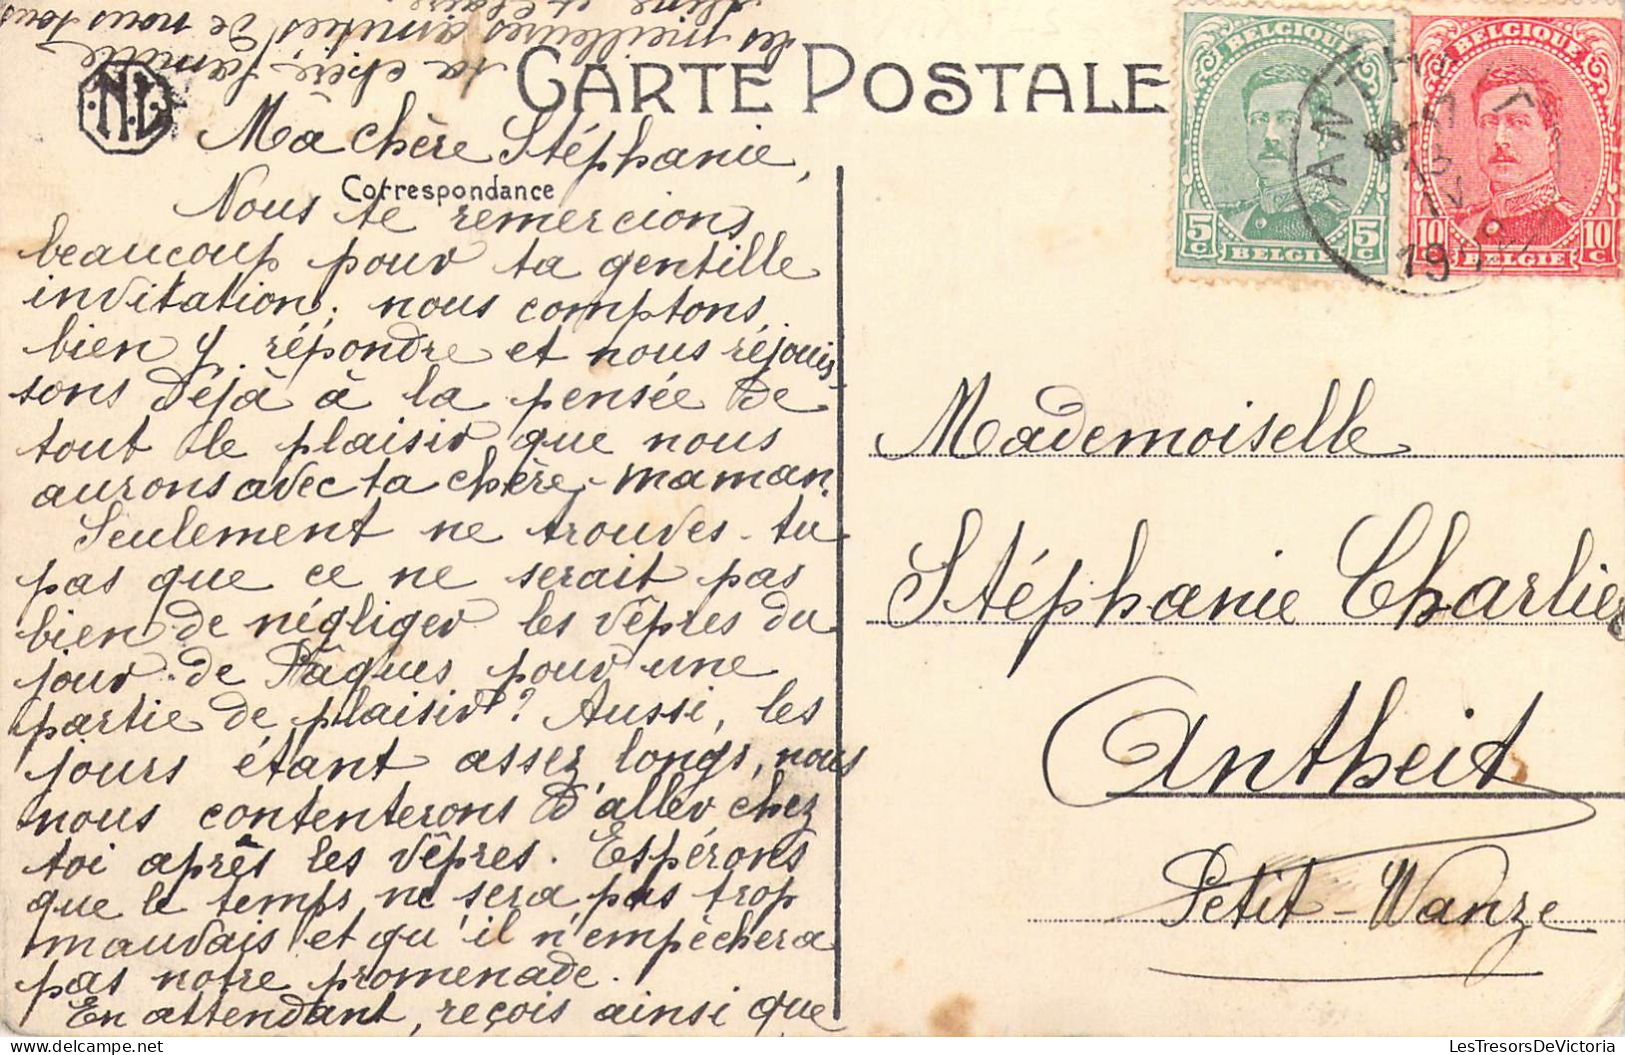 CARTE POSTALE
N.L.
Correspondance
Ma chère Stéphanie,
Nous te remercions
beaucoup pour ta gentille
invitation; nous comptons
bien y répondre et nous réjouis-
sons déjà à la pensée de
tout le plaisir que nous
aurons avec ta chère maman.
Seulement ne trouves-tu
pas que ce ne serait pas
bien de négliger les vêpres du
jour de Pâques pour une
partie de plaisir? Aussi, les
jours étant assez longs, nous
nous contenterons d'aller chez
toi après les vêpres. Espérons
que le temps ne sera pas trop
mauvais et qu'il n'empêchera
pas notre promenade.
En attendant, reçois ainsi que
ta chère famille
les meilleures amitiés de nous tous
et Claire
BELGIQUE
5c 5c
BELGIE
BELGIQUE
10c 10c
BELGIE
ANTHEIT
19
Mademoiselle
Stéphanie Charlier
Antheit
Petit-Wanze
LesTresorsDeVictoria.com